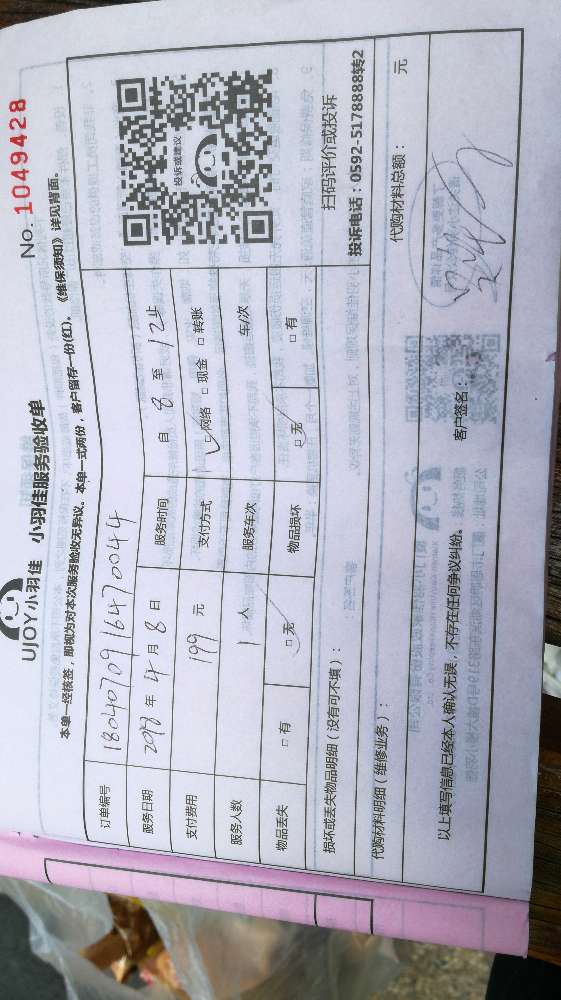 UJOY小羽佳 小羽佳服务验收单
No. 1049428
本单一经核签,即视为对本次服务验收无异议。本单一式两份,客户留存一份(红)。《维保须知》详见背面。
订单编号 1804070916470044
服务日期 2018 年 4 月 8 日 服务时间 自 8 至 12止
支付费用 199 元 支付方式 ☑网络 □现金 □转账
服务人数 1 人 服务车次 车/次
物品丢失 □有 ☑无 物品损坏 ☑无 □有
投诉或建议
扫码评价或投诉
投诉电话:0592-5178888转2
损坏或丢失物品明细(没有可不填):
代购材料明细(维修业务): 代购材料总额: 元
以上填写信息已经本人确认无误,不存在任何争议纠纷。 客户签名: